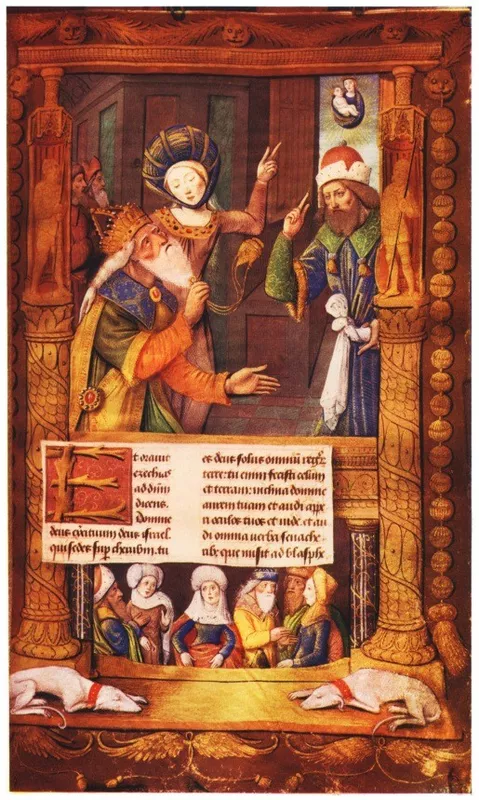 Et orauit
ezechias
ad dñm
dicens.
Domine
deus exercituum deus israel.
qui sedes sup cherubin. tu
es deus solus omniũ
terre: tu enim fecisti celum
et terram: inclina domine
aurem tuam et audi appe
ri oculos tuos et uide. et au
di omnia uerba senache
rib: que misit ad blasphe